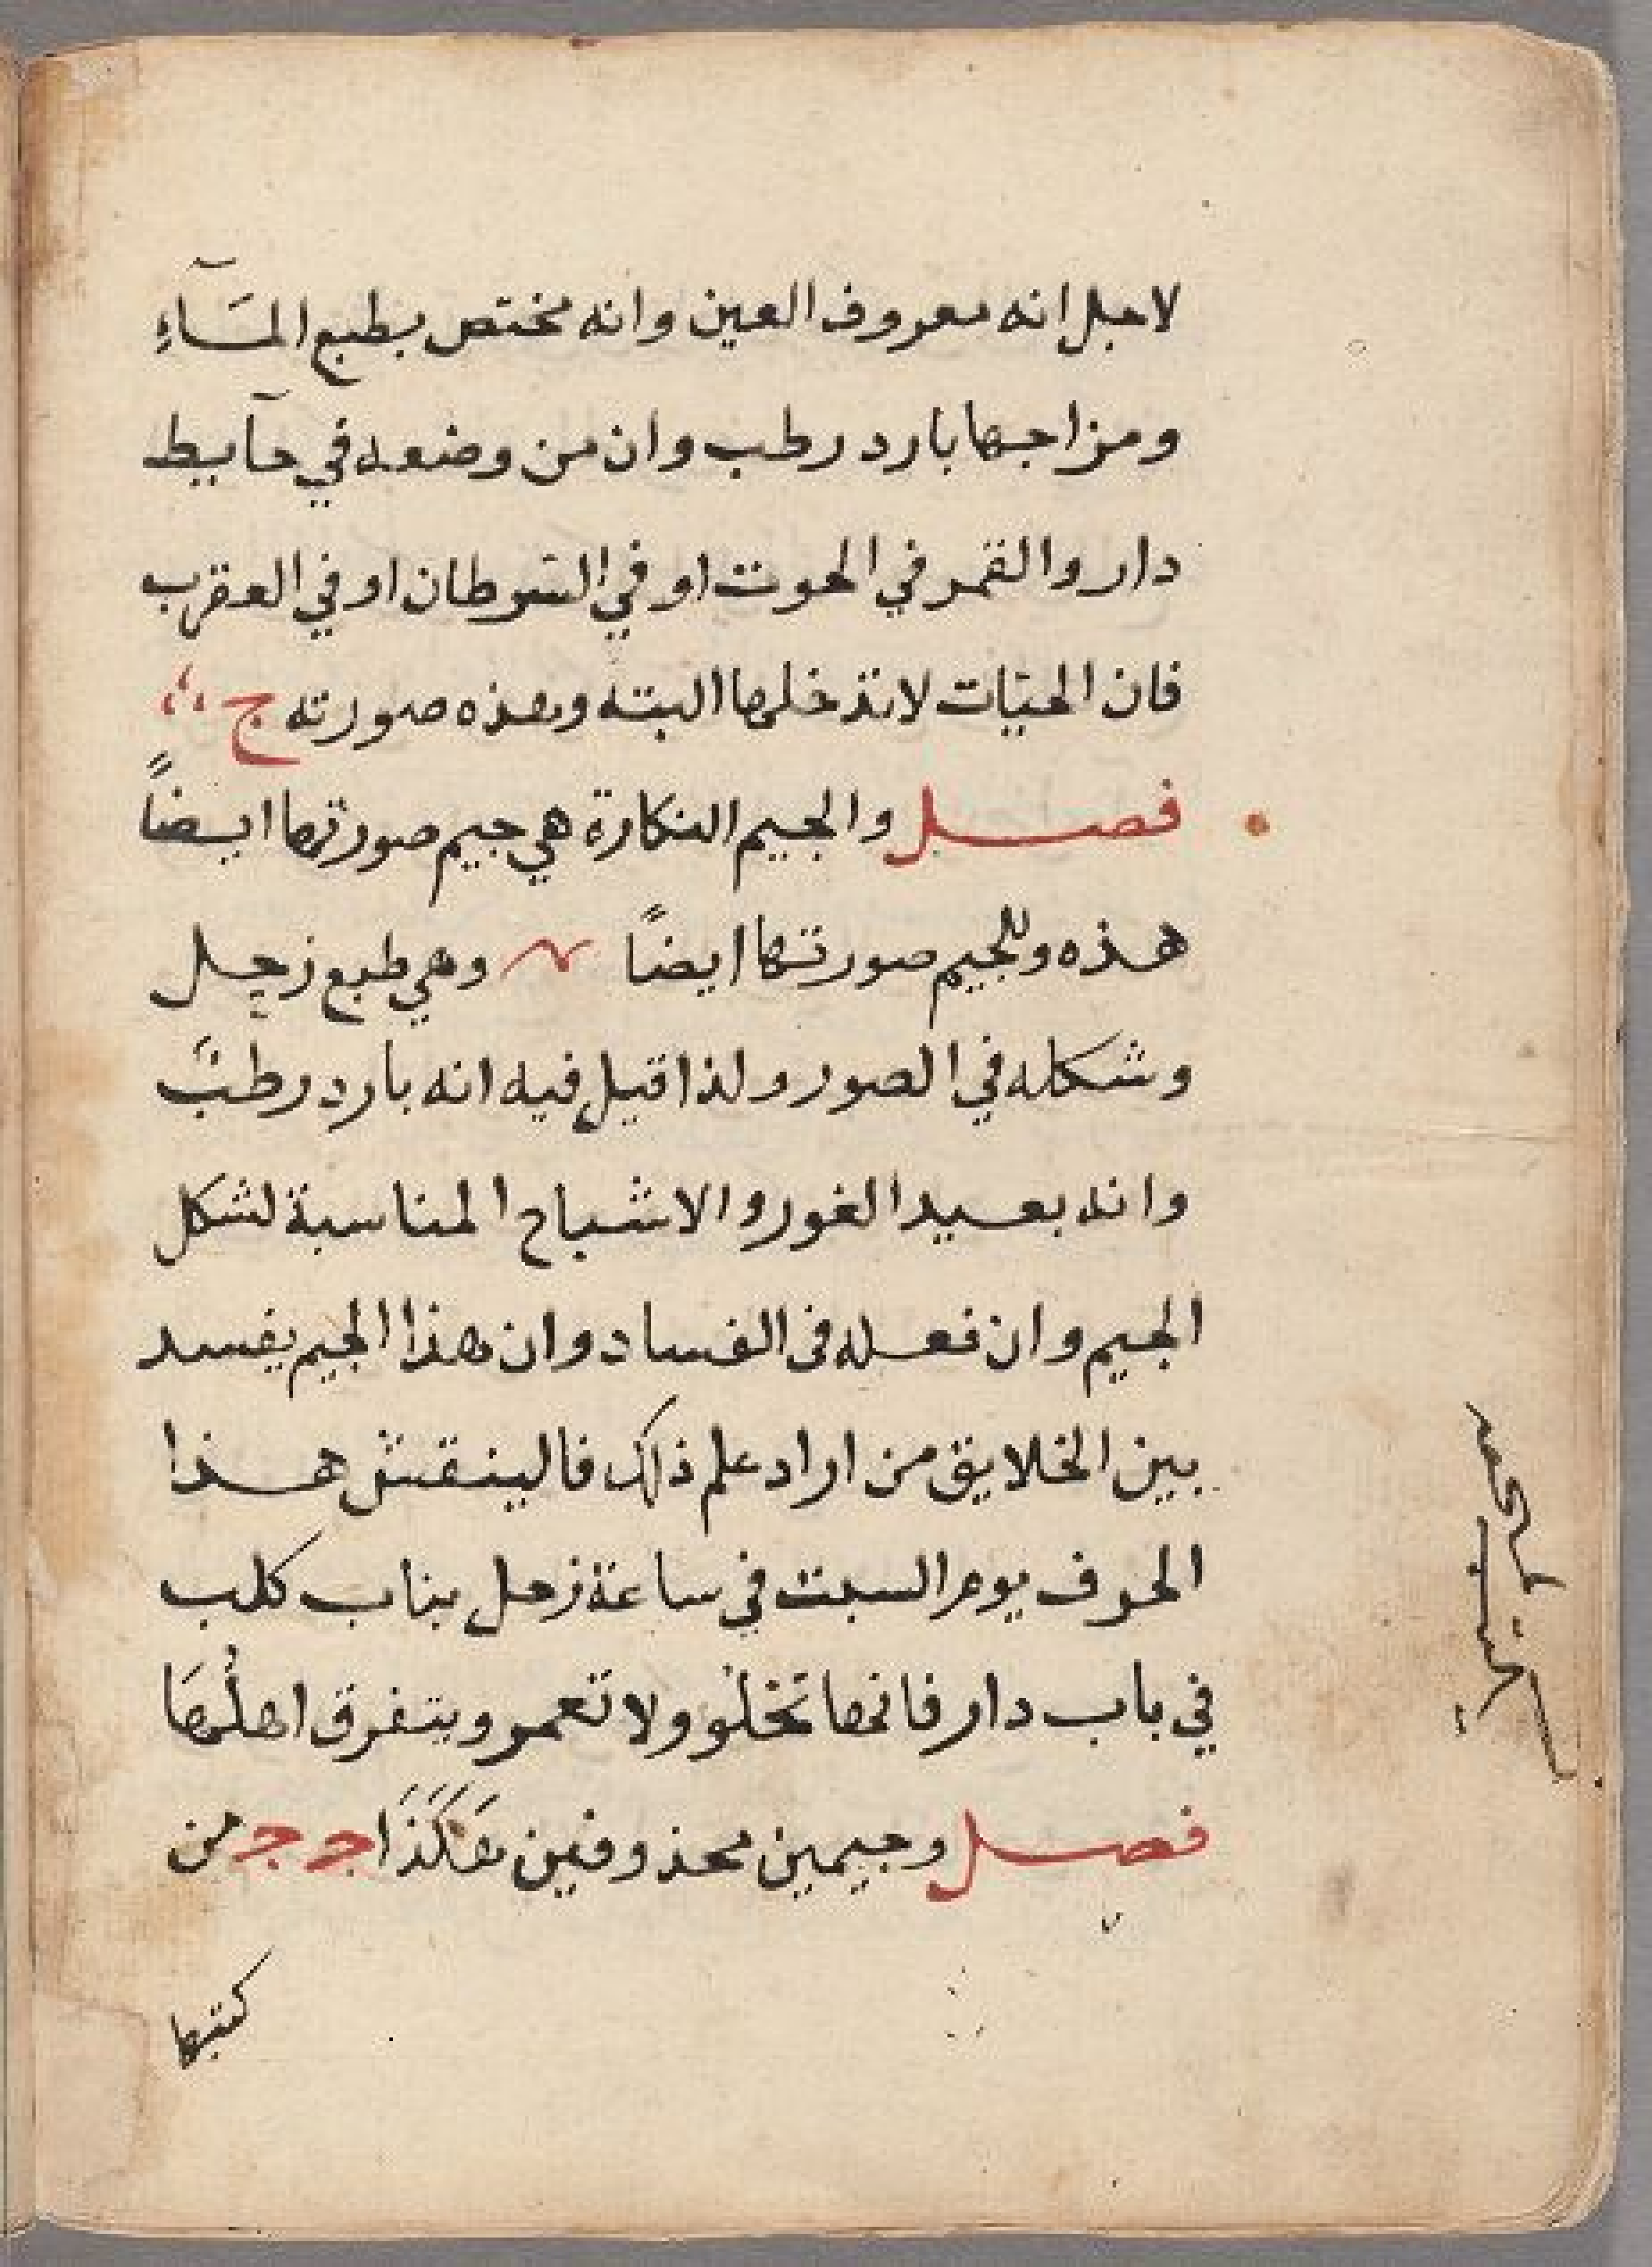 لاجل انه معروف العين وانه مختص بطبع المآءِ
ومزاجها بارد رطب وان من وضعه في حآيط
دار والقمر في الحوت او في السرطان او في العقرب
فان الحيّات لا تدخلها البته وهذه صورته ج
فصل والجيم النكارة هي جيم صورتها ايضاً
هذه وللجيم صورتها ايضاً وهي طبع زحل
وشكله في الصور ولذا قيل فيه انه بارد رطب
وانه بعيد الغور والاشباح المناسبة لشكل
الجيم وان فعله فى الفساد وان هذا الجيم يفسد
بين الخلايق من اراد علم ذلك فالينقش هذا
الحرف يوم السبت في ساعة زحل بناب كلب
في باب دار فانها تخلو ولا تعمر ويتفرق اهلُهَا
فصل وجيمين محذوفين هَكَذَا جـ جـ من
كتبها